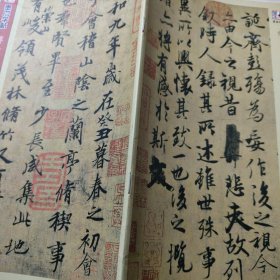 誕齊彭殤為妄作後之視今
由今之視昔悲夫故列
敘時人錄其所述雖世殊事
異所以興懷其致一也後之攬
亦將有感於斯文
和九年歲在癸丑暮春之初會
會稽山陰之蘭亭脩禊事
賢畢至少長咸集此地
崇山
峻領茂林脩竹又有